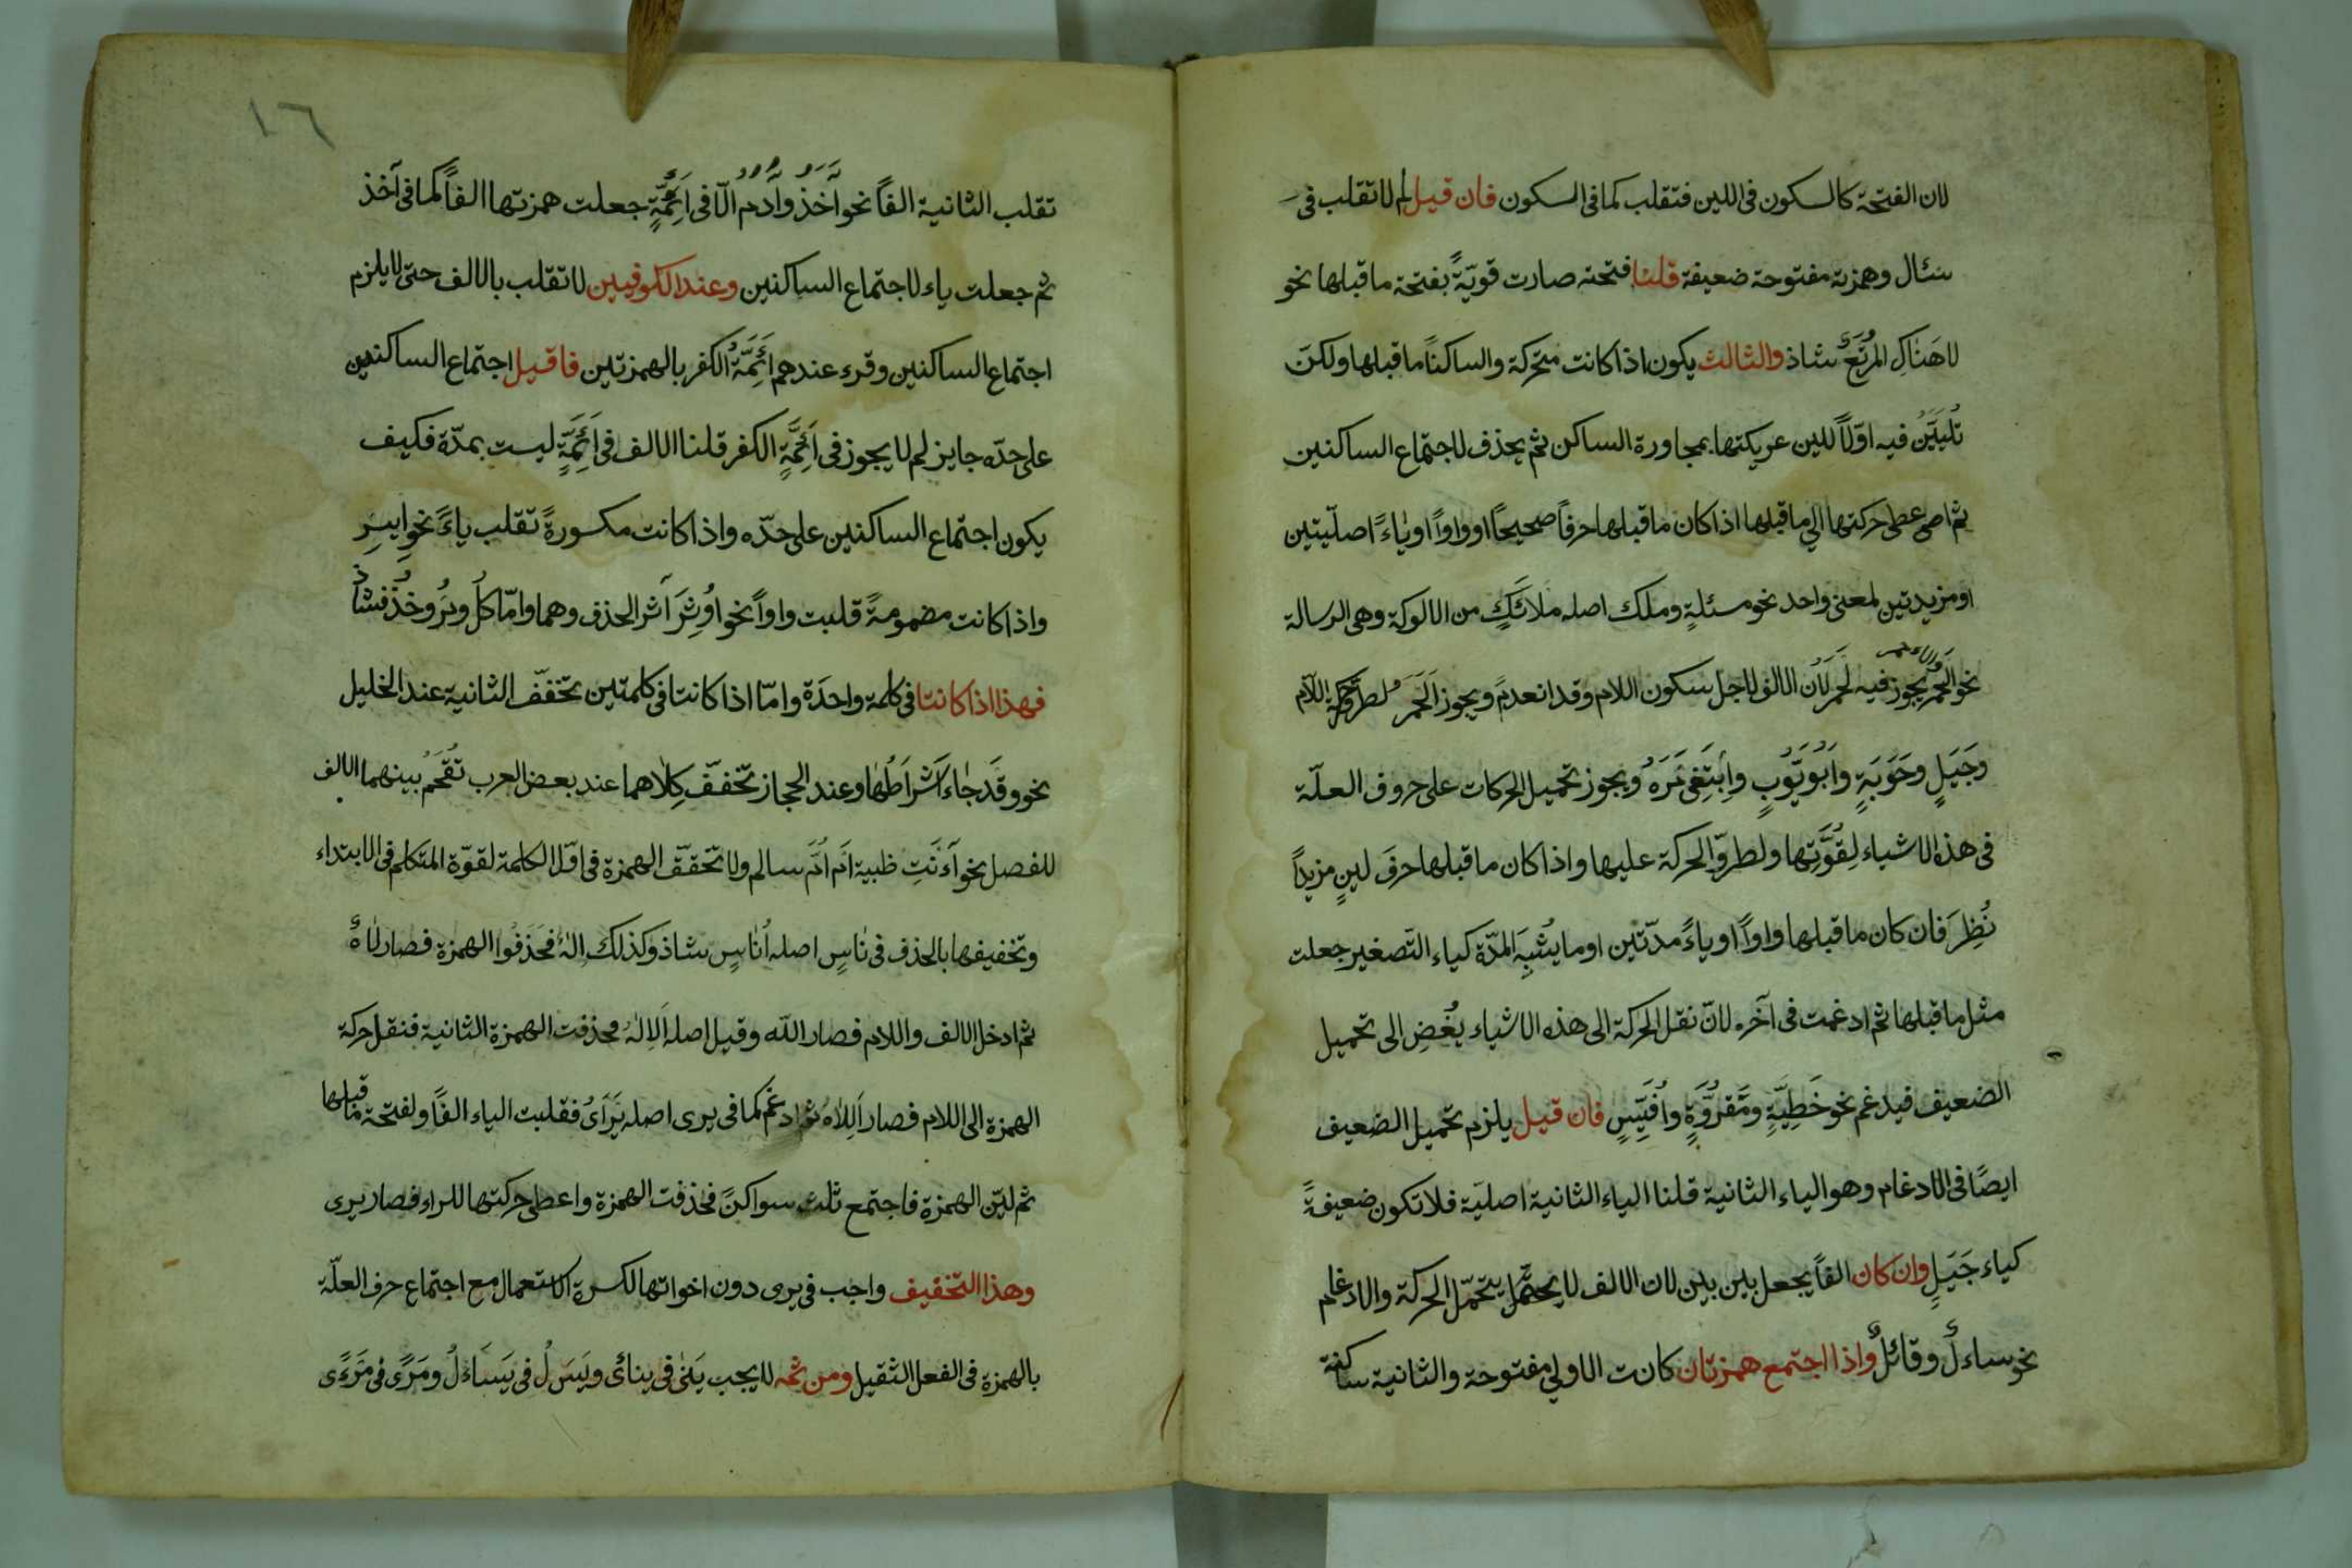 لان الفتحة كالسكون فى اللين فتقلب كما فى السكون فان قيل لم لا تقلب فى
سئال وهمزته مفتوحة ضعيفة قلنا فتحته صارت قويّةً بفتحة ما قبلها نحو
لا هَنَاكِ المَرْتَعُ شاذ والثالث يكون اذا كانت متحركة والساكناً ما قبلها ولكن
تُلَيَّنُ فيه اوّلاً للين عريكتها بمجاورة الساكن ثم يحذف لاجتماع الساكنين
ثم اعطى حركتها الى ما قبلها اذا كان ما قبلها حرفاً صحيحاً او واواً او ياءً اصليّتين
او مزيدتين لمعنى واحد نحو مسئلةٍ وملك اصله ملائَكٍ من الالوكة وهى الرسالة
نحو الَحْمَرُ يجوز فيه لَحْمَرُ لان الالف لاجل سكون اللام وقد انعدم ويجوز اَلَحْمَرُ لطروّ حركة اللام
وجَيَلٍ وحَوَبَةٍ واَبُوَيُّوبٍ واِبْتَغِىَ مْرَهُ ويجوز تحميل الحركات على حروف العلّة
فى هذه الاشياء لِقُوَّتِها ولطروّ الحركة عليها واذا كان ما قبلها حرفَ لينٍ مزيداً
نُظِرَ فان كان ما قبلها واواً او ياءً مدّتين او ما يُشْبِهَ المدّة كياء التّصغير جعلت
مثل ما قبلها ثم ادغمت فى آخره لانّ نقل الحركة الى هذه الاشياء يُفْضِ الى تحميل
الضعيف فيدغم نحو خَطِيَّةٍ ومَقْرُوَّةٍ واُفَيِّسٍ فان قيل يلزم تحميل الضعيف
ايضًا فى الادغام وهو الياء الثانية قلنا الياء الثانية اصليّة فلا تكون ضعيفةً
كياء جَيَلٍ وان كان الفاً يجعل بين بين لان الالف لا يحتمل يتحمّل الحركة والادغام
نحو ساءلٌ وقائلٌ واذا اجتمع همزتان كانت الاولى مفتوحة والثانية ساكنة
١٦
تقلب الثانية الفاً نحو أَأْخَذُ وأَأْدَمُ الّا فى اَئِمَّةٍ جعلت همزتها الفاً كما فى آخذ
ثم جعلت ياء لاجتماع الساكنين وعند الكوفيين لا تقلب بالالف حتى لا يلزم
اجتماع الساكنين وقرء عندهم اَئِمَّةُ الكفر بالهمزتين فاقيل اجتماع الساكنين
على حدّه جايز لم لا يجوز فى اَئِمَّةٍ الكفر قلنا الالف فى اَئِمَّةٍ ليست بمدّة فكيف
يكون اجتماع الساكنين على حدّه واذا كانت مكسورةً تقلب ياءً نحو اِيسِر
واذا كانت مضمومةً قلبت واواً نحو اُوثِرَ آثر الحذف وهما وامّا كُلْ ومُرْ وخُذْ فشاذٌ
فهذا اذا كانتا فى كلمة واحدَة وامّا اذا كانتا فى كلمتين تخفّف الثانية عند الخليل
نحو وقَدْ جاءَ اَشْرَاطُهَا وعند الحجاز تخفّف كِلَاهما عند بعض العرب تُقْحَمُ بينهما الالف
للفصل نحو آءَنْتِ ظبية اَمْ اُمُّ سالم ولا تخفّف الهمزة فى اوّل الكلمة لقوّة المتكلم فى الابتداء
وتخفيفها بالحذف فى نَاسٍ اصله اُنَاسٍ شاذ وكذلك اِلٰهٌ فحَذَفُوا الهمزة فصار لَاهٌ
ثم ادخل الالف واللام فصار اللّه وقيل اصله اَلاِلٰهُ فحذفت الهمزة الثانية فنقل حركة
الهمزة الى اللام فصار اَلِلَاهُ ثم ادغم كما فى يرى اصله يَرْاَىُ فقلبت الياء الفاً ولفتحة ما قبلها
ثم ليّن الهمزة فاجتمع ثلث سواكنَ فحذفت الهمزة واعطى حركتها للراء فصار يرى
وهذا التخفيف واجب فى يرى دون اخواتها لكسرة الاستعمال مع اجتماع حرف العلّة
بالهمزة فى الفعل الثقيل ومن ثمه لا يجب يَنٰى فى يناىُ ويَسَلُ فى يَسْاءَلُ ومَرَىً فى مَرْءًى